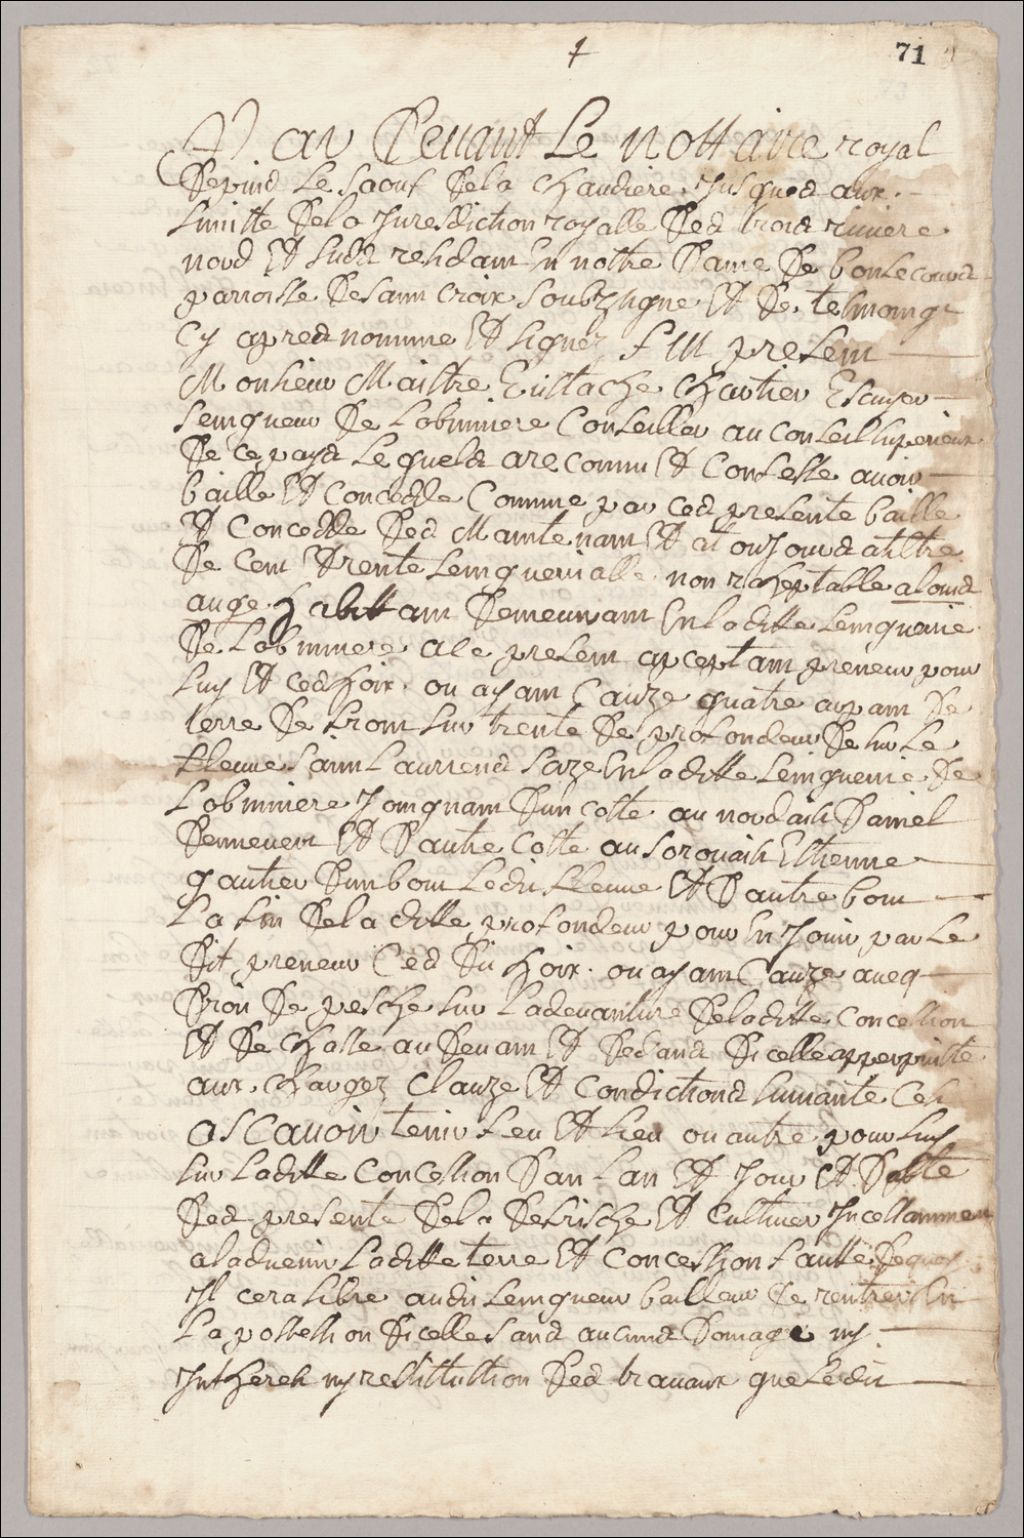 71
Par Devant Le nottaire royal
Depuid Le Saout Dela Chaudiere Jusqued aux
limitte Dela Juresdiction royalle Ded troid riviere
nord Et sudd residam En nottre Dame De bonsecourd
parroisse De saint Croix Soubzsigne Et De temoingt
Cy apred nomme Et signez fut present
Monsieur Maistre Eustache Chartier Escuyer
Seingneur De Lobinniere Conseiller au Conseil superieur
De ce payd Lequeld a reconnu Et Confesse avoir
baille Et Concedde Comme par ced presente baille
Et Concedde Ded Maintenant Et atoujourd atiltre
De Cent Et rente Seingneurialle non racheptable alouid
auge habittam Demeurant En laditte Seingneurie
De Lobinniere a le present acceptam preneur pour
luy Et ced hoir ou ayam Cauze quatre arpam De
terre De front sur trente De profondeur De sur Le
fleuve Saint Laurrend Size En laditte Seingneurie De
Lobinniere Joingnam Dun Cotte au nordaist Daniel
Dennevert Et Dautre Cotte au Sorouaist Estienne
gautier Dun bout Ledit fleuve Et Dautre bout
La fin Dela ditte profondeur pour En Jouir par Le
Dit preneur Ced Dit hoir ou ayam Cauze avecq
Droit De pesche sur Ladevanture Deladitte Concession
Et De Chasse au Devam Et Dedand Dicelle apperpuitte
aux Chargez Clauze Et Condictiond suivante Cest
ascavoir tenir feu Et lieu ou autre pour luy
sur Laditte Concession Dan Lan Et Jour Et Datte
Ded presente Dela Defrische Et Cultiver Incessammen
aladvenir Laditte terre Et Concession fautte Dequoy
Il cera libre audit Seingneur bailleur De rentrer En
La possession Dicelle Sand aucund Domage ny
Intherest ny restituttion Ded travaux que Ledit